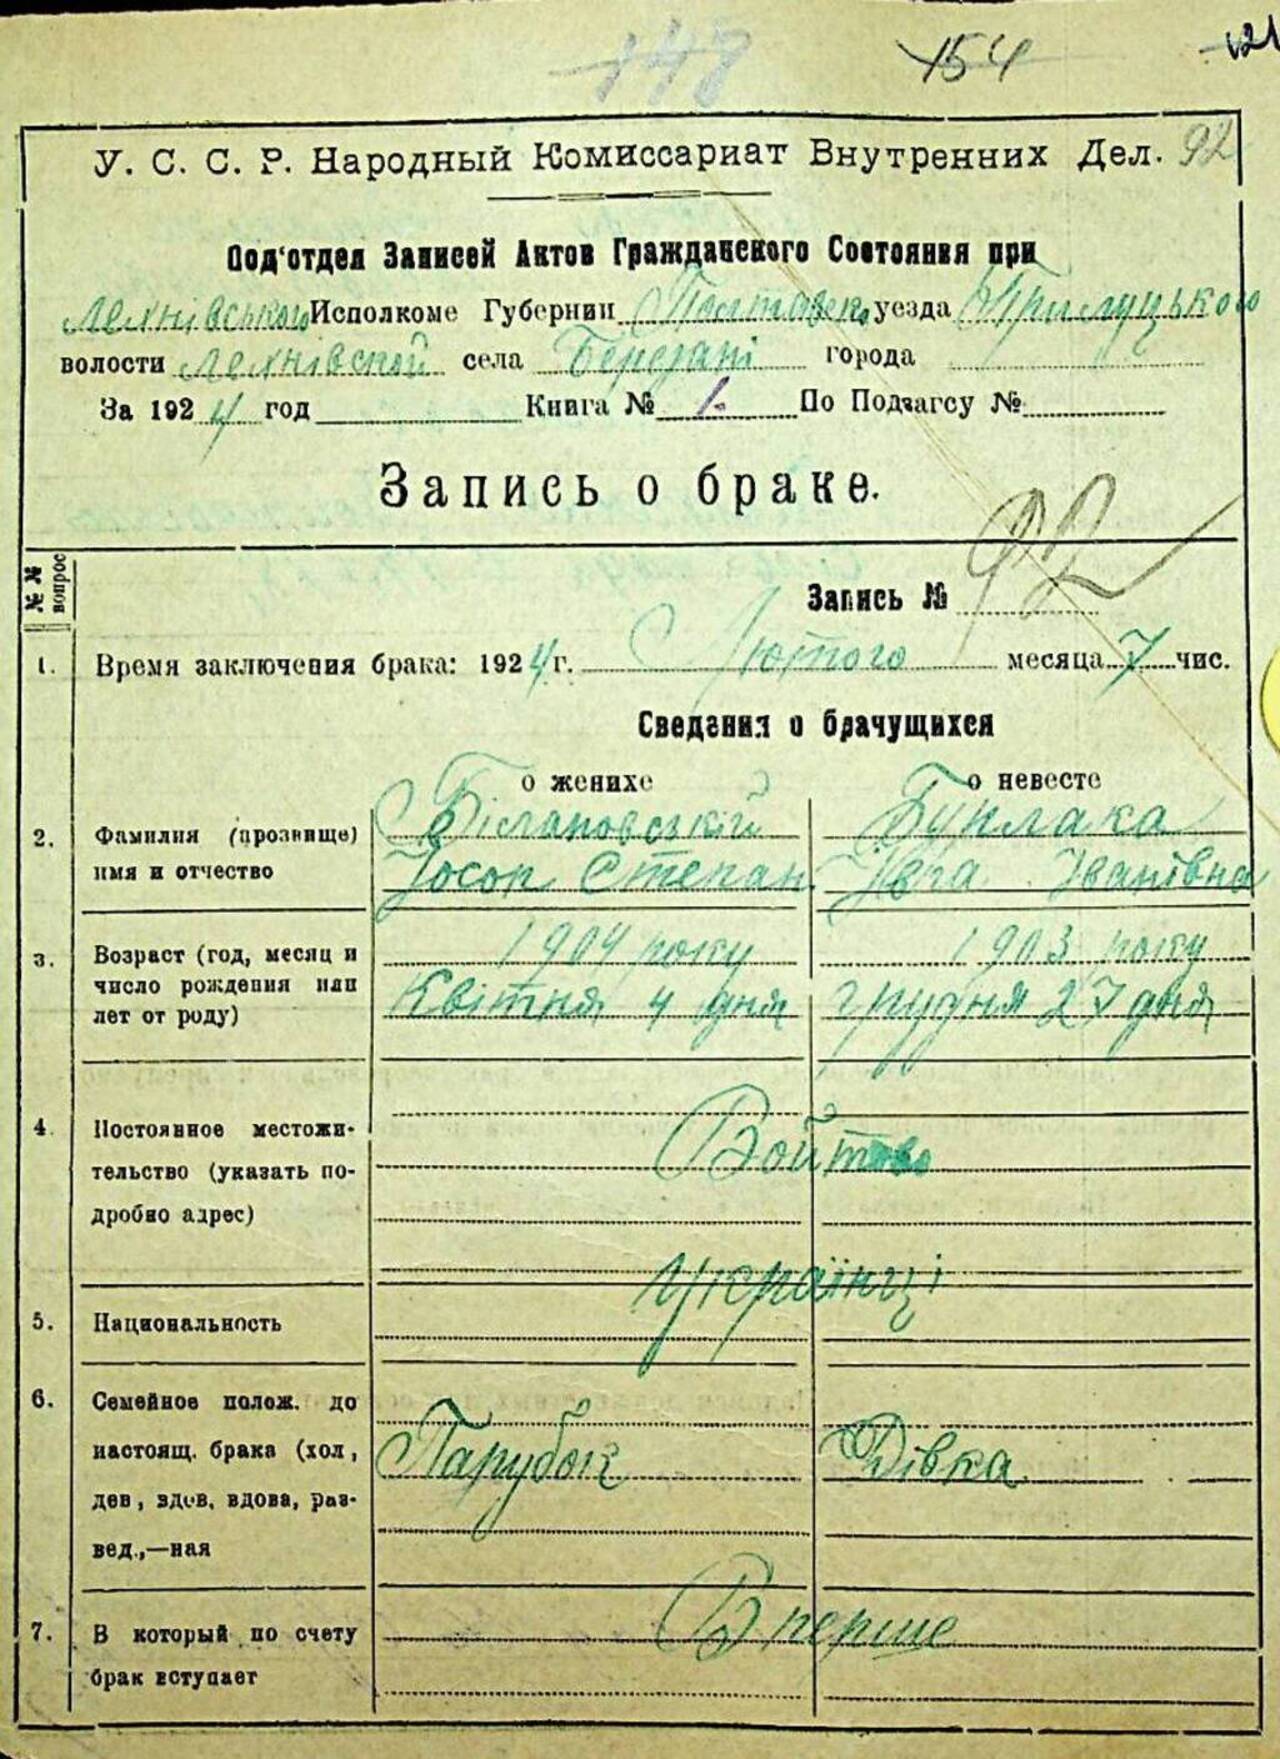 148 154 121
У. С. С. Р. Народный Комиссариат Внутренних Дел. 92
Под'отдел Записей Актов Гражданского Состояния при
Лехнівського Исполкоме Губернии Полтавськ уезда Прилуцького
волости Лехнівской села Березані города
За 1924 год Книга № 1. По Подзагсу №
Запись о браке.
№№ вопрос
Запись № 92
1. Время заключения брака: 1924 г. Лютого месяца 7 чис.
Сведения о брачущихся
о женихе о невесте
2. Фамилия (прозвище) Білановський Бунлака
имя и отчество Йосоп Степан Івга Іванівна
3. Возраст (год, месяц и 1904 року 1903 року
число рождения или Квітня 4 дня грудня 27 дня
лет от роду)
4. Постоянное местожи- Войтово
тельство (указать по-
дробно адрес)
Українці
5. Национальность
6. Семейное полож. до
настоящ. брака (хол, Парубок Дівка
дев, вдов, вдова, раз-
вед.,—ная
7. В который по счету Вперше
брак вступает